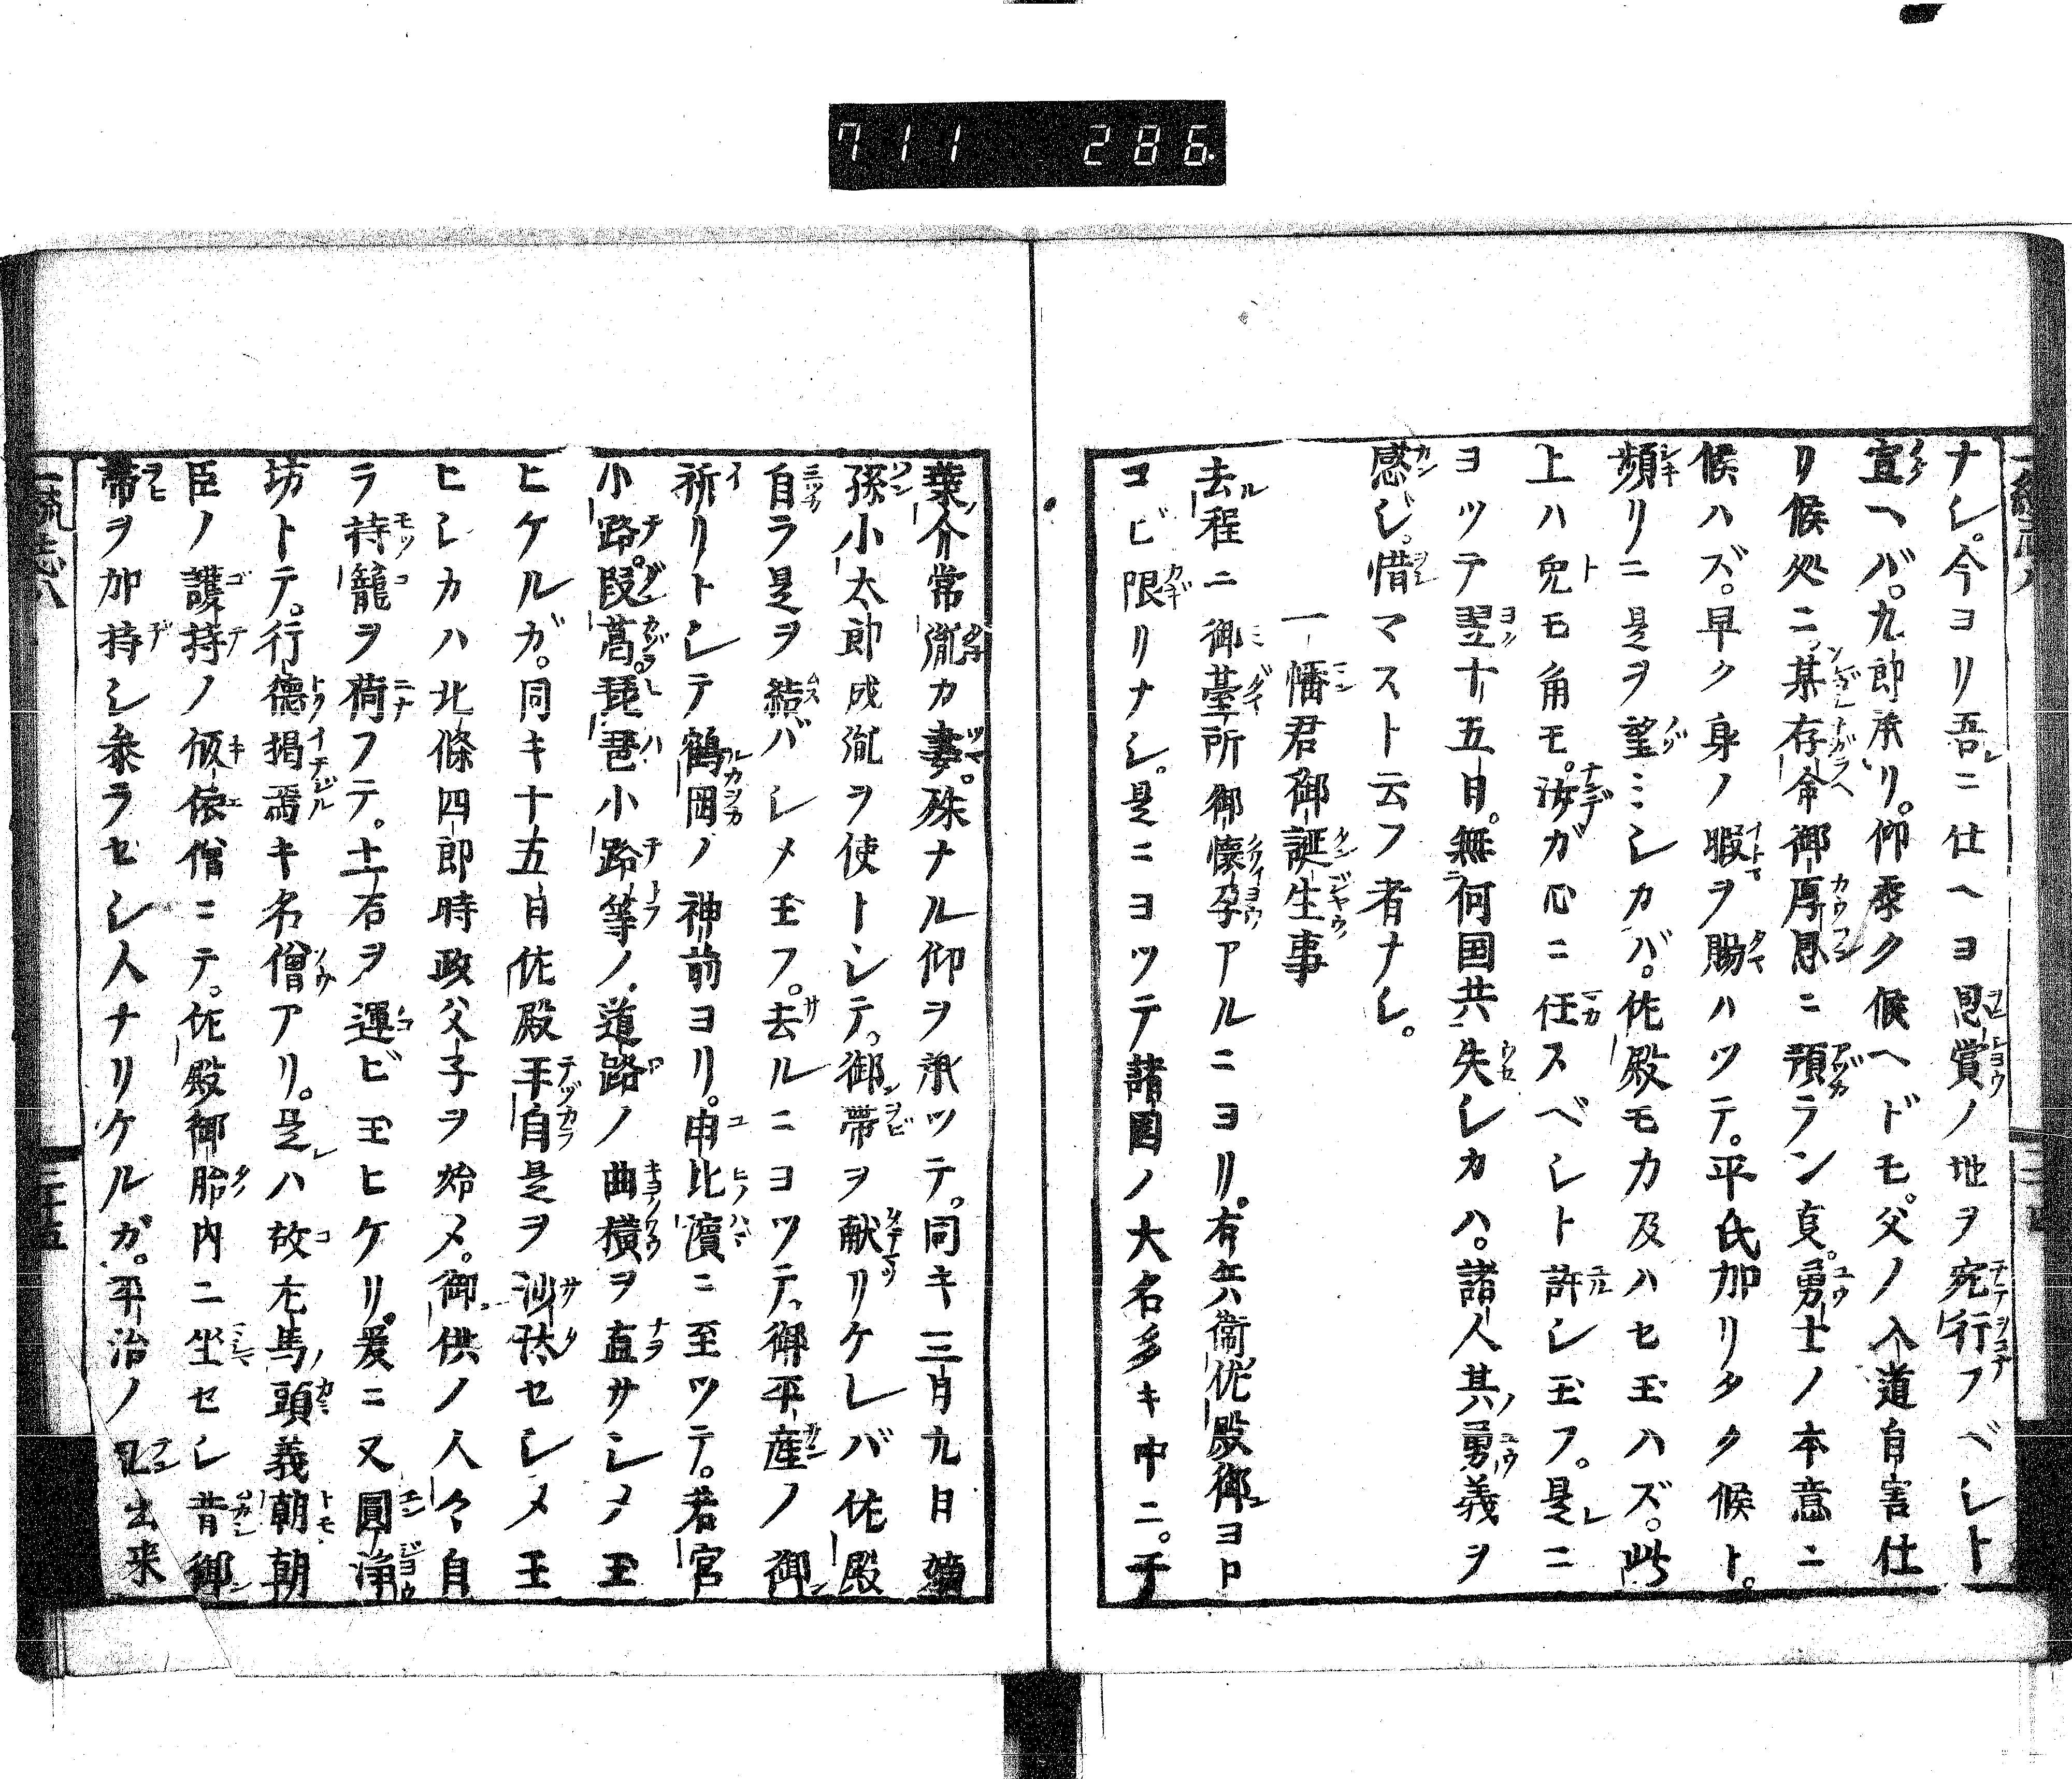 711 286
ナシ。今ヨリ吾ニ仕ヘヨ恩賞ノ地ヲ宛行フベシト
宣ヘバ。九郎承リ。仰忝ク候ヘドモ。父ノ入道自害仕
リ候処ニ。某存命御厚恩ニ預ラン亨。勇士ノ本意ニ
候ハズ。早ク身ノ暇ヲ賜ハツテ。平氏加リタク候ト。
頻リニ是ヲ望ミシカバ。佐殿モ力及ハセ玉ハズ。此
上ハ兎モ角モ。汝ガ心ニ任スベシト許シ玉フ。是ニ
ヨツテ翌十五日。無何国共失シカハ。諸人其勇義ヲ
感ジ。惜マスト云フ者ナシ。
一幡君御誕生事
去程ニ御臺所御懐孕アルニヨリ。右兵衞佐殿御ヨロ
コビ限リナシ。是ニヨツテ諸国ノ大名多キ中ニ。千
葉介常胤カ妻。殊ナル仰ヲ承ツテ。同キ三月九日嫡
孫小太郎成胤ヲ使トシテ。御帯ヲ献リケレバ佐殿
自ラ是ヲ結バシメ玉フ。去ルニヨツテ。御平産ノ御
祈リトシテ鶴岡ノ神前ヨリ。由比濱ニ至ツテ。若宮
小路。段葛。琵琶小路等ノ道路ノ曲横ヲ直サシメ玉
ヒケルガ。同キ十五日佐殿手自是ヲ沙汰セシメ玉
ヒシカハ北條四郎時政父子ヲ始メ。御供ノ人々自
ラ持籠ヲ荷フテ。土石ヲ運ビ玉ヒケリ。爰ニ又圓浄
坊トテ。行徳掲焉キ名僧アリ。是ハ故左馬頭義朝朝
臣ノ護持ノ皈依僧ニテ。佐殿御胎内ニ坐セシ昔御
帯ヲ加持シ参ラセシ人ナリケルガ。平治ノ乱出来